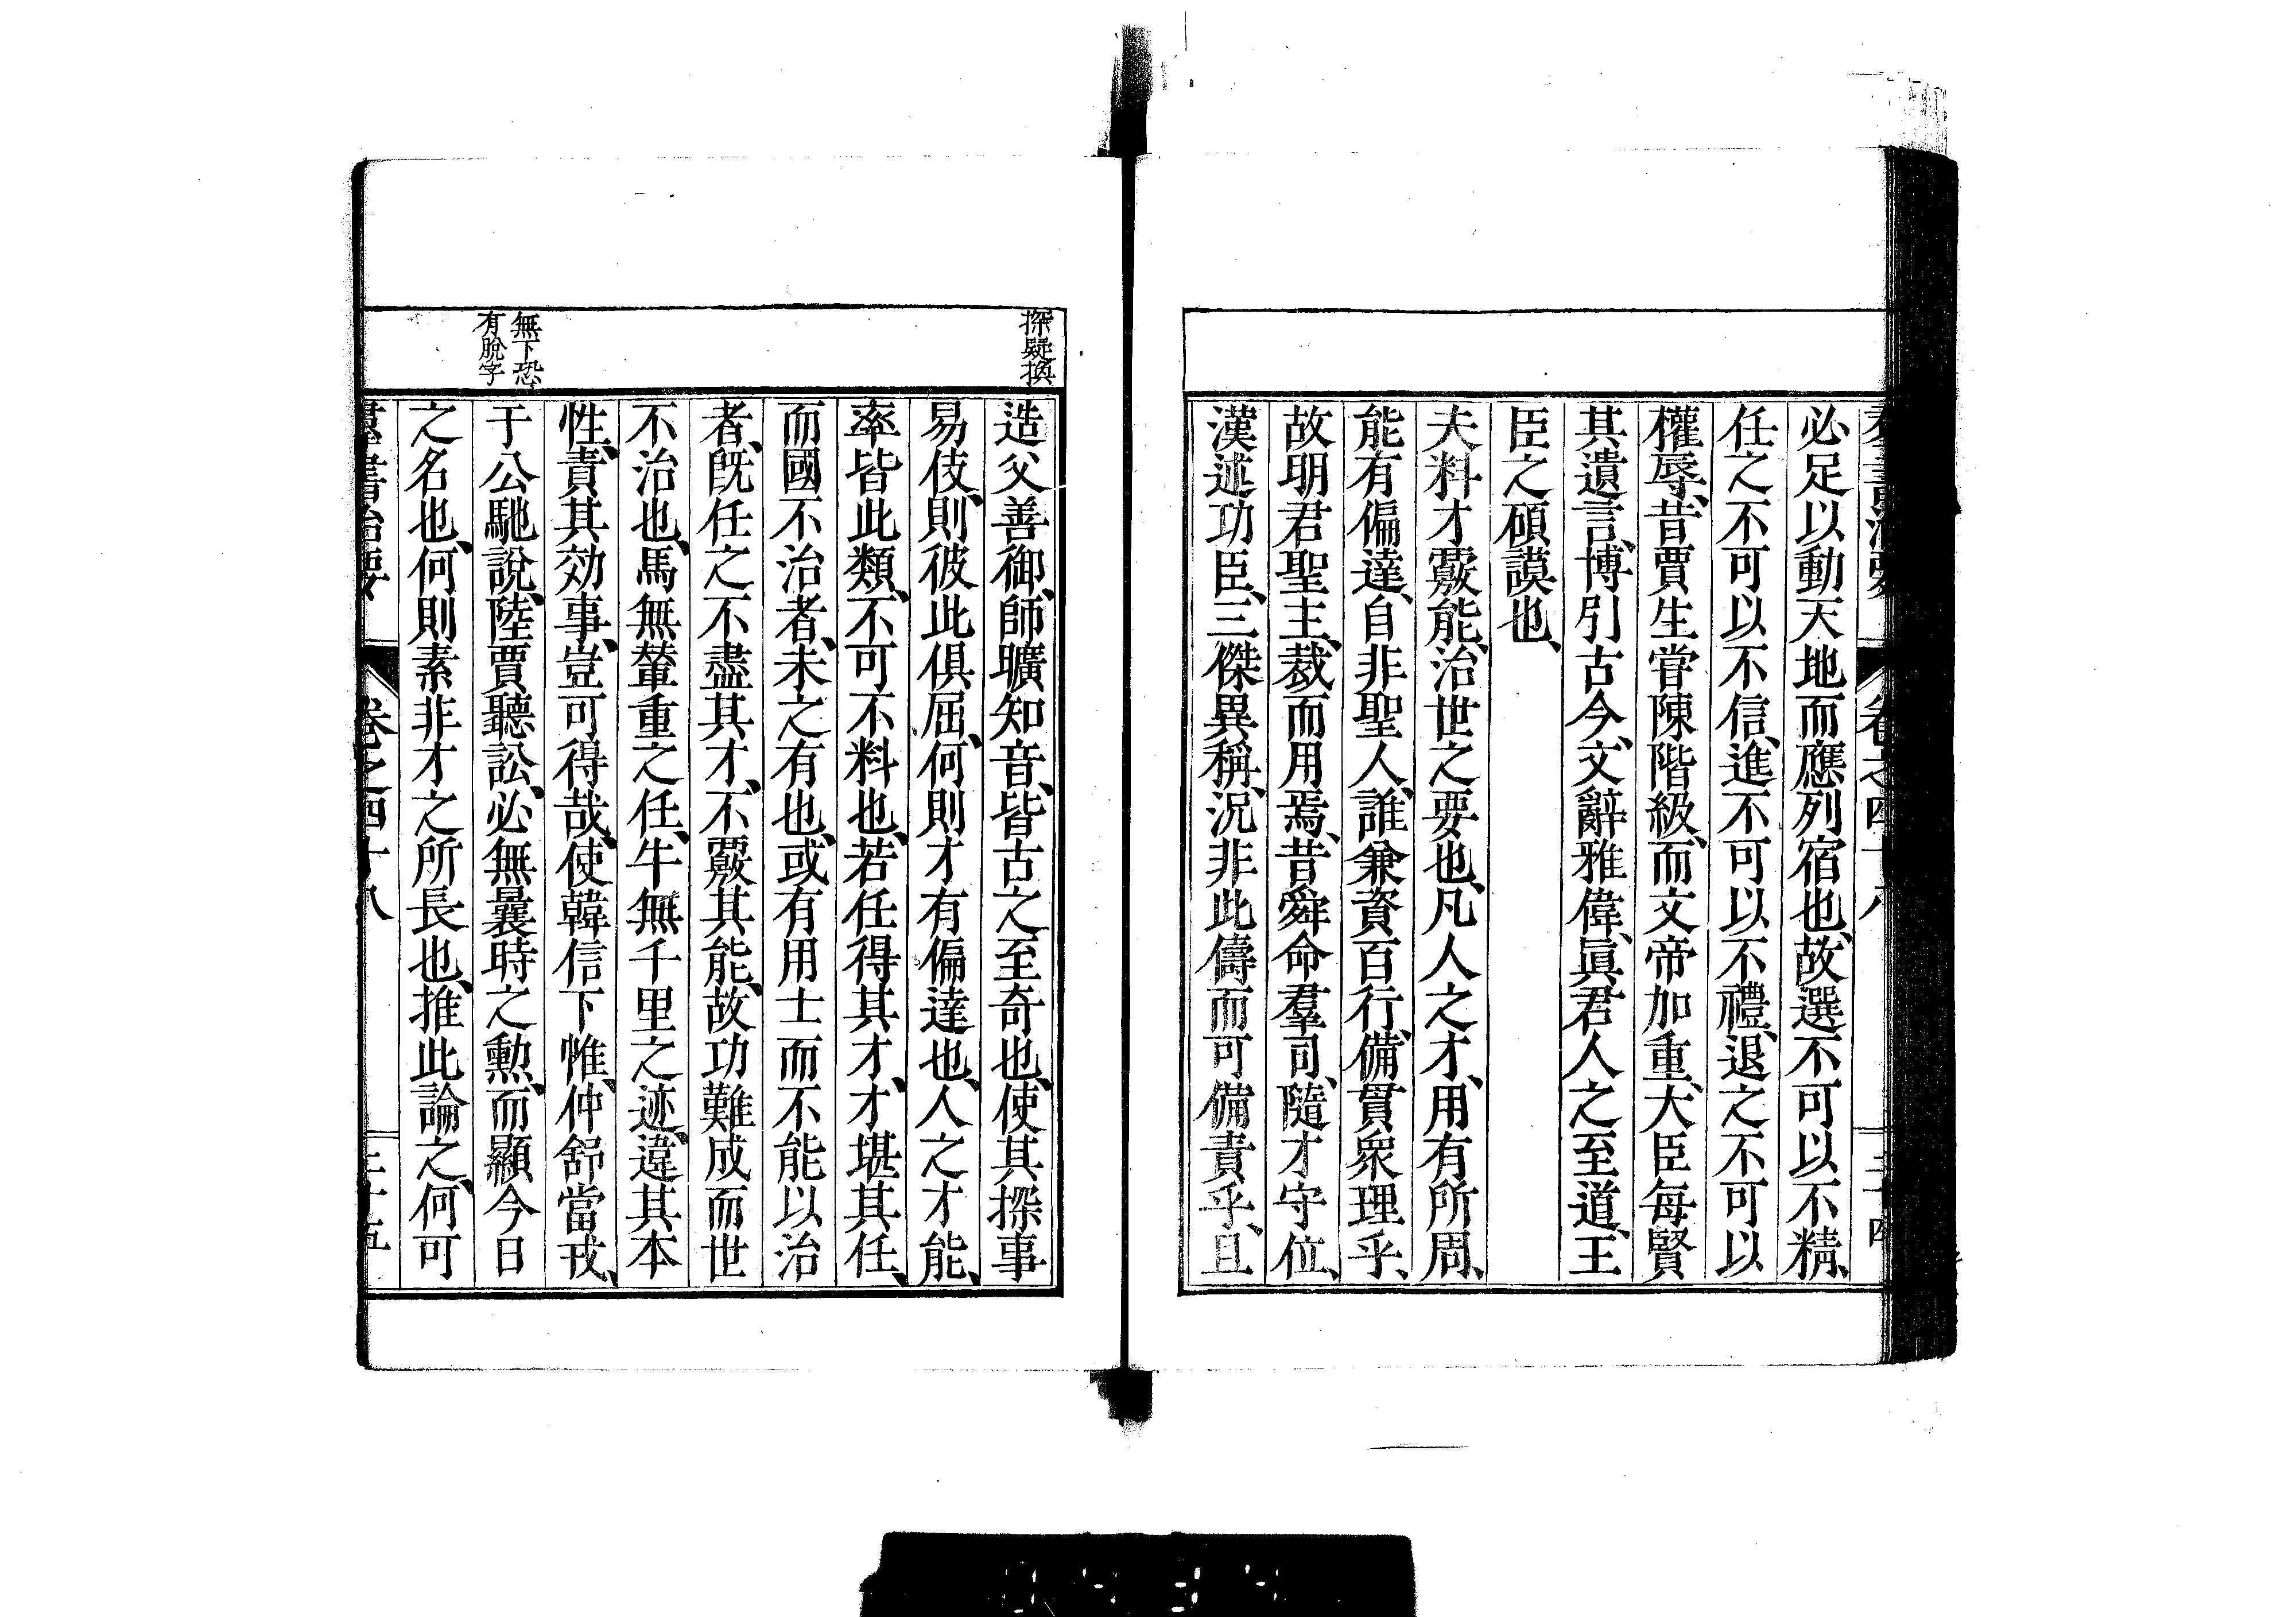 羣書治要 卷之四十八 三十四
必足以動天地而應列宿也、故選不可以不精、
任之不可以不信、進不可以不禮、退之不可以
權辱、昔賈生嘗陳階級、而文帝加重、大臣每賢
其遺言、博引古今、文辭雅偉、眞君人之至道、王
臣之碩謨也、
夫料才覈能、治世之要也、凡人之才、用有所周、
能有偏達、自非聖人、誰兼資百行、備貫衆理乎、
故明君聖主、裁而用焉、昔舜命羣司、隨才守位、
漢述功臣、三傑異稱、況非此儔而可備責乎、且
探疑換
造父善御、師曠知音、皆古之至奇也、使其探事
易伎、則彼此俱屈、何則才有偏達也、人之才能、
率皆此類、不可不料也、若任得其才、才堪其任、
而國不治者、未之有也、或有用士而不能以治
者、既任之不盡其才、不覈其能、故功難成而世
不治也、馬無輦重之任、牛無千里之迹、違其本
性、責其効事、豈可得哉、使韓信下帷、仲舒當戎、
無下恐
有脫字
于公馳說、陸賈聽訟、必無曩時之勳、而顯今日
之名也、何則素非才之所長也、推此論之、何可
羣書治要 卷之四十八 三十五